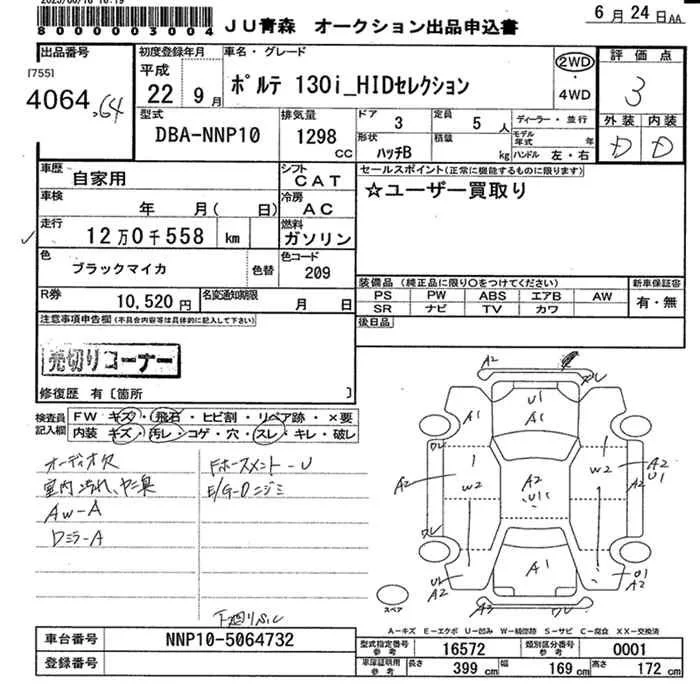 8000000003004
JU青森 オークション出品申込書
6月24日AA
出品番号
[755]
4064
64
初度登録年月
平成
22 9月
車名・グレード
ポルテ 130i_HIDセレクション
2WD
・
4WD
評価点
3
型式
DBA-NNP10
排気量
1298
CC
ドア
3
定員
5人
形状
ハッチB
積載
kg
ディーラー・並行
モデル年式 年
ハンドル 左・右
外装 内装
D D
車歴
自家用
シフト
CAT
車検
年 月( 日)
冷房
AC
走行
12万0千558 km
燃料
ガソリン
色
ブラックマイカ
色替
色コード
209
R券
10,520円
名変通知期限
月 日
セールスポイント(正常に機能するものに限ります)
☆ユーザー買取り
装備品 (純正品に限り○をつけてください)
PS PW ABS エアB AW
SR ナビ TV カワ
新車保証書
有・無
後日品
注意事項申告欄(不具合内容等は具体的に記入して下さい)
売切りコーナー
修復歴 有 [箇所 ]
検査員記入欄
FW キズ・飛石・ヒビ割・リペア跡・×要
内装 キズ・汚レ・コゲ・穴・スレ・キレ・破レ
オーディオ欠
室内汚れ、ヤニ臭
AW-A
Dミラ-A
Fホースメント-U
E/G-Dニジミ
A2
U1
A1
A1
W2
A2
U1
W2
A2
A2
U1
A2
U1
A2
A1
U1
A2
A2
スペア
A-キズ E-エクボ U-凹み W-補修跡 S-サビ C-腐食 XX-交換済
車台番号
NNP10-5064732
登録番号
型式指定番号
参考
16572
類別区分番号
参考
0001
車庫証明用
参考
長さ
399 cm
幅
169 cm
高さ
172 cm